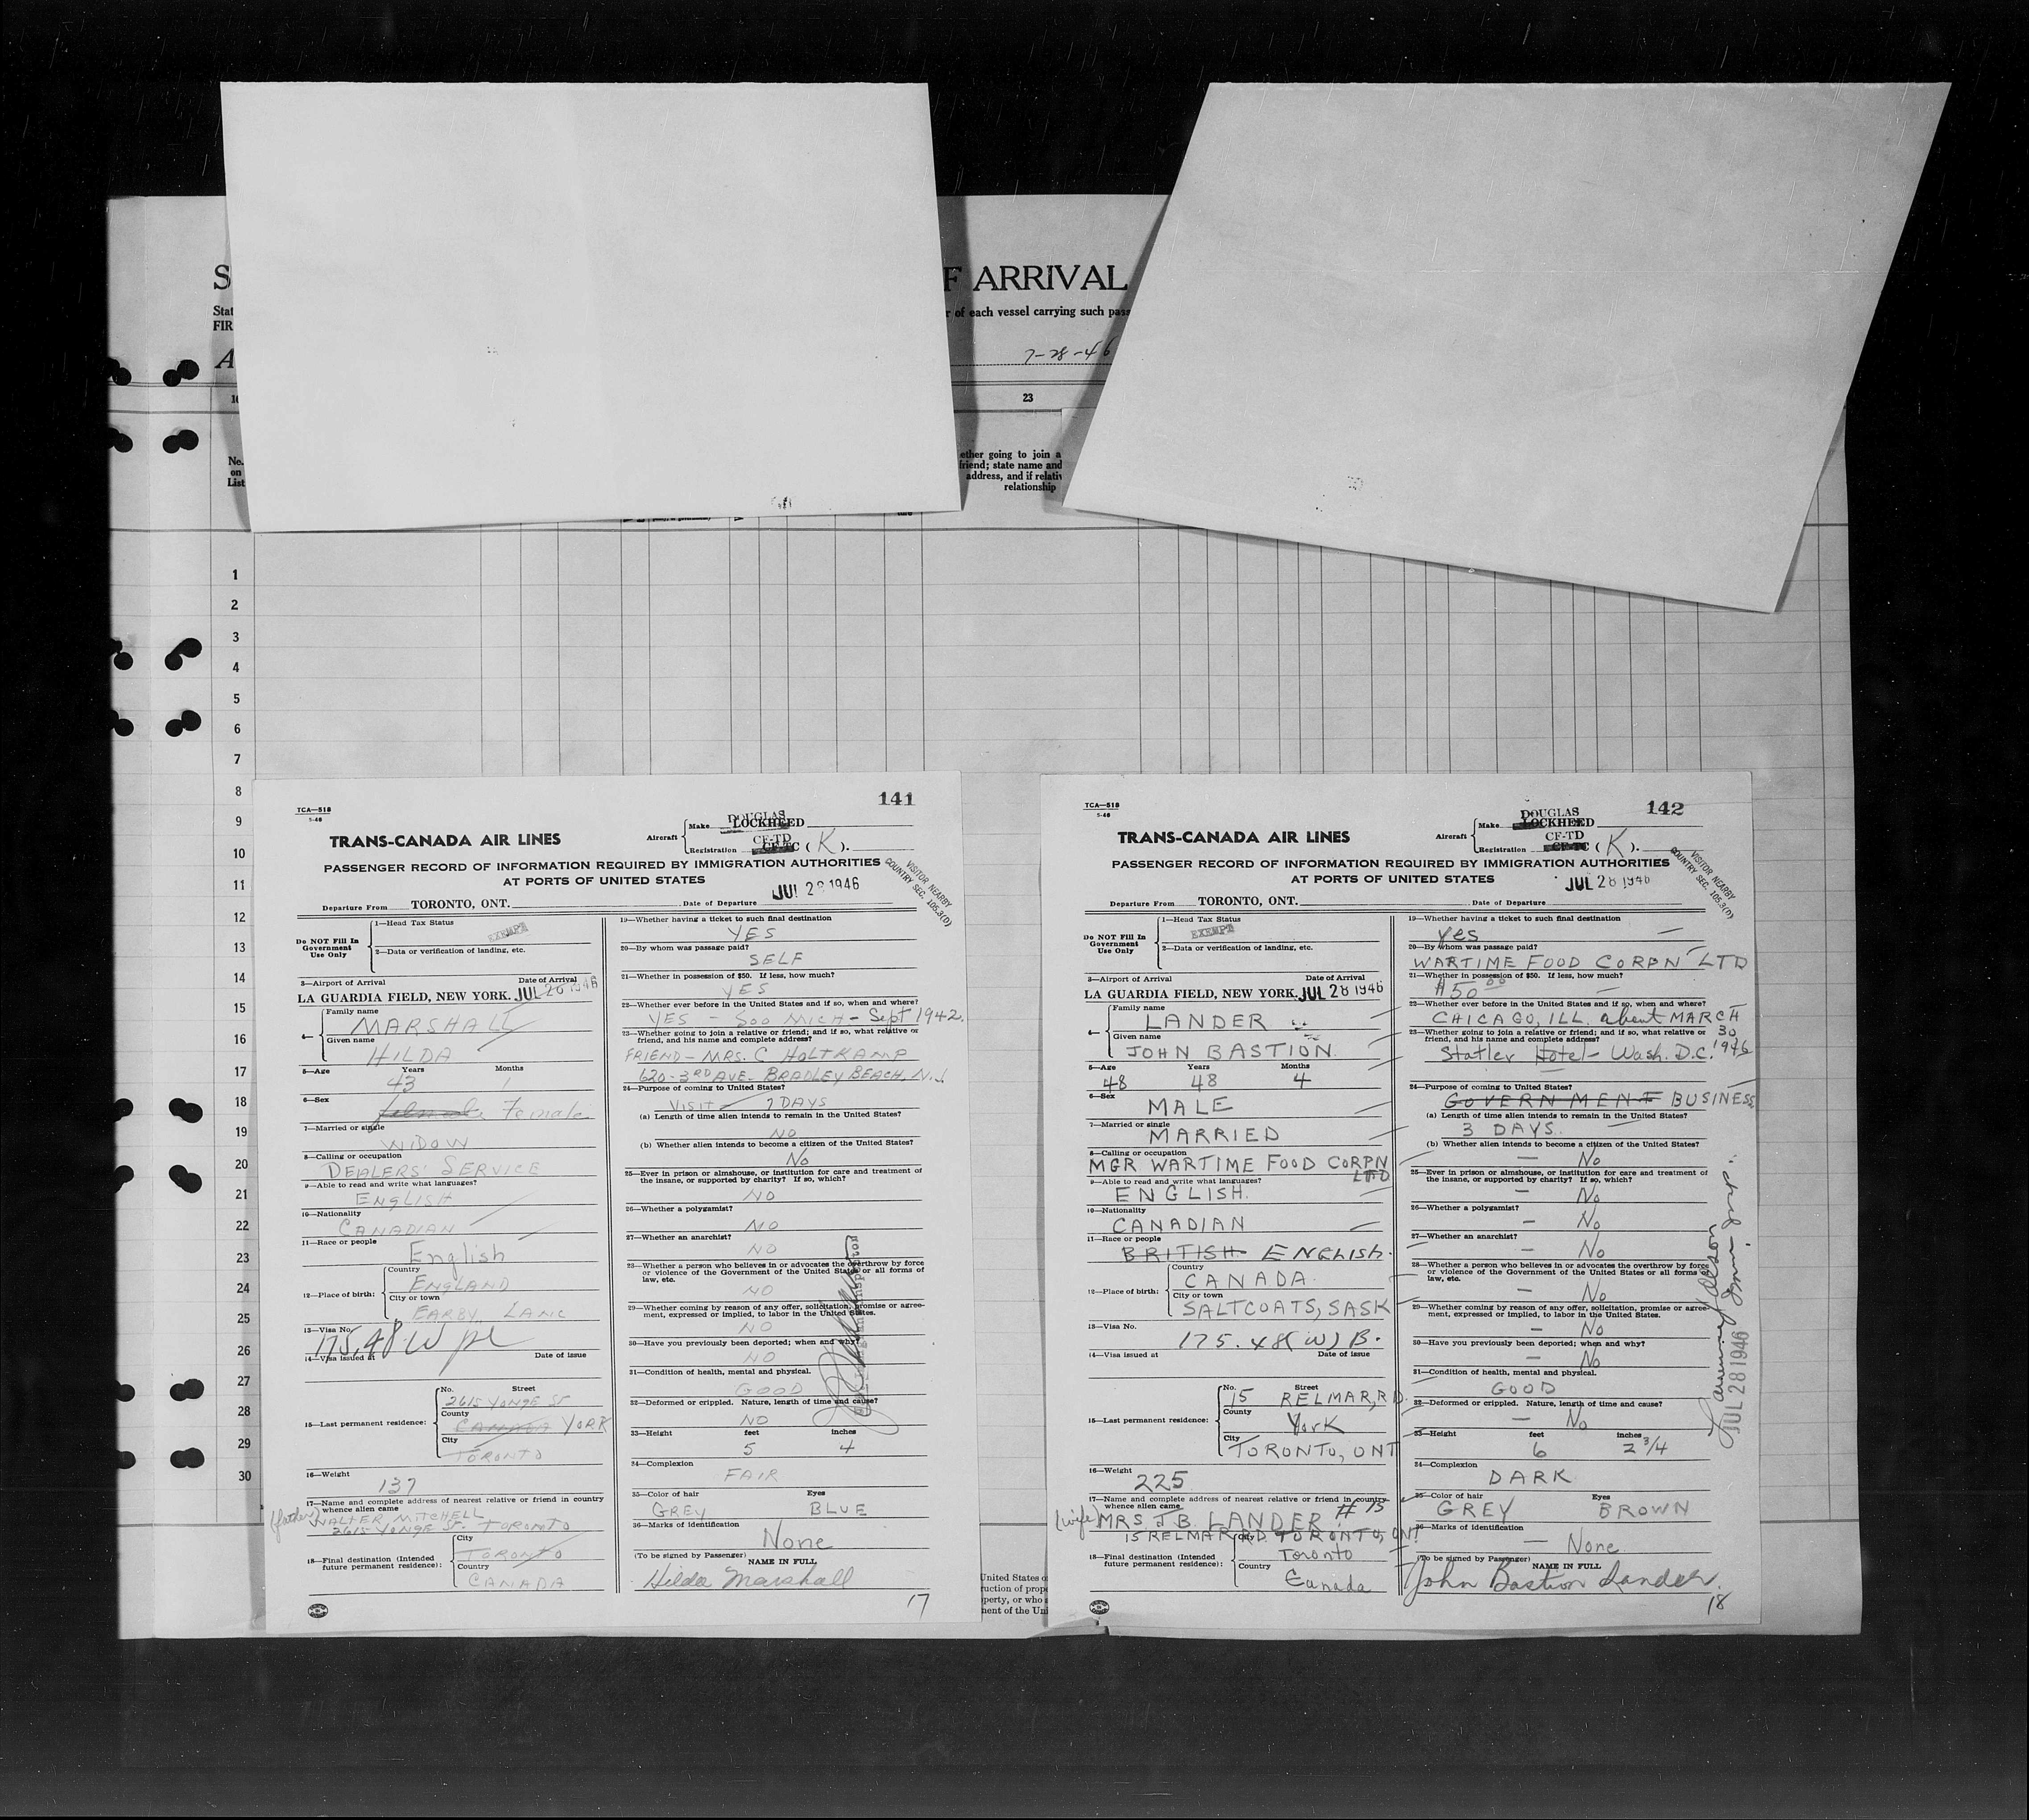 S
F ARRIVAL
Stat
r of each vessel carrying such pass
FIR
A
7-28-46
23
No.
on
List
ether going to join a
friend; state name and
address, and if relativ
relationship
1
2
3
4
5
6
7
8
9
10
11
12
13
14
15
16
17
18
19
20
21
22
23
24
25
26
27
28
29
30
TCA—518
5-46
141
TRANS-CANADA AIR LINES
Aircraft
Make DOUGLAS LOCKHEED
Registration CF-TD CF-TC (K).
PASSENGER RECORD OF INFORMATION REQUIRED BY IMMIGRATION AUTHORITIES
AT PORTS OF UNITED STATES
VISITOR NEARBY
COUNTRY SEC. 105.3(D)
JUL 28 1946
Departure From TORONTO, ONT. Date of Departure
Do NOT Fill In
Government
Use Only
1—Head Tax Status
EXEMPT
2—Data or verification of landing, etc.
3—Airport of Arrival Date of Arrival
LA GUARDIA FIELD, NEW YORK. JUL 28 1946
4—
Family name
MARSHALL
Given name
HILDA
5—Age Years Months
43 1
6—Sex
female Female
7—Married or single
WIDOW
8—Calling or occupation
DEALERS' SERVICE
9—Able to read and write what languages?
ENGLISH
10—Nationality
CANADIAN
11—Race or people
English
12—Place of birth:
Country
ENGLAND
City or town
EARBY, LANC
13—Visa No.
175.48 W pl
14—Visa issued at Date of issue
15—Last permanent residence:
No. Street
2615 YONGE ST
County
CANADA YORK
City
TORONTO
16—Weight
137
17—Name and complete address of nearest relative or friend in country
whence alien came
(father) WALTER MITCHELL
2615 YONGE ST. TORONTO
18—Final destination (Intended
future permanent residence):
City
TORONTO
Country
CANADA
19—Whether having a ticket to such final destination
YES
20—By whom was passage paid?
SELF
21—Whether in possession of $50. If less, how much?
YES
22—Whether ever before in the United States and if so, when and where?
YES - SOO MICH - Sept 1942.
23—Whether going to join a relative or friend; and if so, what relative or
friend, and his name and complete address?
FRIEND - MRS. C HOLTKAMP
620-3RD AVE. BRADLEY BEACH, N.J.
24—Purpose of coming to United States?
VISIT 7 DAYS
(a) Length of time alien intends to remain in the United States?
NO
(b) Whether alien intends to become a citizen of the United States?
No
25—Ever in prison or almshouse, or institution for care and treatment of
the insane, or supported by charity? If so, which?
NO
26—Whether a polygamist?
NO
27—Whether an anarchist?
NO
28—Whether a person who believes in or advocates the overthrow by force
or violence of the Government of the United States or all forms of
law, etc.
NO
29—Whether coming by reason of any offer, solicitation, promise or agree-
ment, expressed or implied, to labor in the United States.
NO
30—Have you previously been deported; when and why?
NO
31—Condition of health, mental and physical.
GOOD
32—Deformed or crippled. Nature, length of time and cause?
NO
33—Height feet inches
5 4
34—Complexion
FAIR
35—Color of hair Eyes
GREY BLUE
36—Marks of identification
None
(To be signed by Passenger) NAME IN FULL
Hilda Marshall
17
United States o
ruction of prope
perty, or who s
ment of the Uni
TCA—518
5-46
142
TRANS-CANADA AIR LINES
Aircraft
Make DOUGLAS LOCKHEED
Registration CF-TD CF-TC (K).
PASSENGER RECORD OF INFORMATION REQUIRED BY IMMIGRATION AUTHORITIES
AT PORTS OF UNITED STATES
VISITOR NEARBY
COUNTRY SEC. 105.3(D)
JUL 28 1946
Departure From TORONTO, ONT. Date of Departure
Do NOT Fill In
Government
Use Only
1—Head Tax Status
EXEMPT
2—Data or verification of landing, etc.
3—Airport of Arrival Date of Arrival
LA GUARDIA FIELD, NEW YORK. JUL 28 1946
4—
Family name
LANDER
Given name
JOHN BASTION
5—Age Years Months
48 48 4
6—Sex
MALE
7—Married or single
MARRIED
8—Calling or occupation
MGR WARTIME FOOD CORPN
LTD
9—Able to read and write what languages?
ENGLISH.
10—Nationality
CANADIAN
11—Race or people
BRITISH ENGLISH.
12—Place of birth:
Country
CANADA.
City or town
SALTCOATS, SASK
13—Visa No.
175.48(W) B.
14—Visa issued at Date of issue
15—Last permanent residence:
No. Street
15 RELMAR, RD.
County
York
City
TORONTO, ONT
16—Weight
225
17—Name and complete address of nearest relative or friend in country
whence alien came
# 15
(wife) MRS J.B. LANDER
15 RELMAR RD. TORONTO, ONT
18—Final destination (Intended
future permanent residence):
City
Toronto
Country
Canada
19—Whether having a ticket to such final destination
Yes
20—By whom was passage paid?
WARTIME FOOD CORPN LTD
21—Whether in possession of $50. If less, how much?
$50 00
22—Whether ever before in the United States and if so, when and where?
CHICAGO, ILL. about MARCH
30
1946
23—Whether going to join a relative or friend; and if so, what relative or
friend, and his name and complete address?
Statler Hotel - Wash. D.C.
24—Purpose of coming to United States?
GOVERNMENT BUSINESS
(a) Length of time alien intends to remain in the United States?
3 DAYS.
(b) Whether alien intends to become a citizen of the United States?
— No
25—Ever in prison or almshouse, or institution for care and treatment of
the insane, or supported by charity? If so, which?
— No
26—Whether a polygamist?
— No
27—Whether an anarchist?
— No
28—Whether a person who believes in or advocates the overthrow by force
or violence of the Government of the United States or all forms of
law, etc.
— No
29—Whether coming by reason of any offer, solicitation, promise or agree-
ment, expressed or implied, to labor in the United States.
— No
30—Have you previously been deported; when and why?
— No
31—Condition of health, mental and physical.
GOOD
32—Deformed or crippled. Nature, length of time and cause?
— No
33—Height feet inches
6 2 3/4
34—Complexion
DARK
35—Color of hair Eyes
GREY BROWN
36—Marks of identification
— None.
(To be signed by Passenger) NAME IN FULL
John Bastion Lander.
18
JUL 28 1946